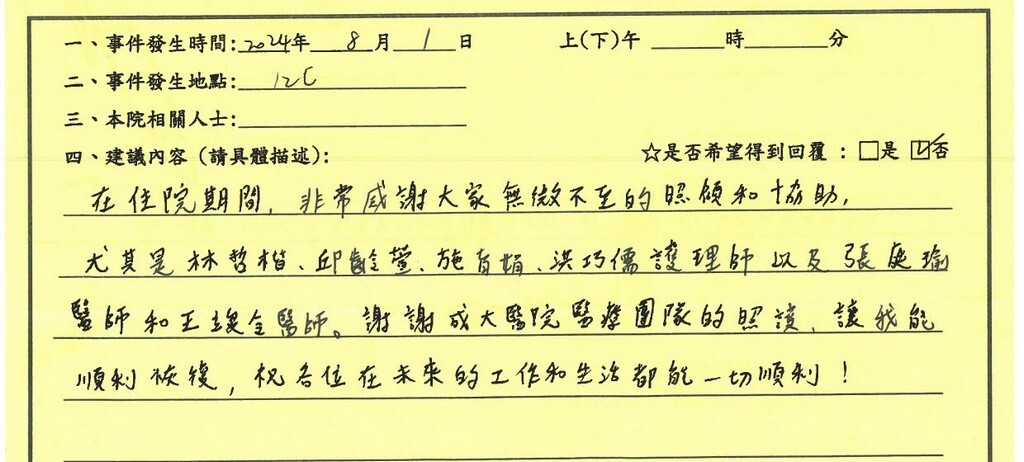 一、事件發生時間:2024年 8 月 1 日 上(下)午 ______時______分
二、事件發生地點: 12C
三、本院相關人士:
四、建議內容（請具體描述）： ☆是否希望得到回覆：□是 ☑否
在住院期間，非常感謝大家無微不至的照顧和協助，
尤其是林哲楷、邱齡萱、施育娟、洪巧儒護理師以及張庭瑜
醫師和王 醫師。謝謝成大醫院醫療團隊的照護，讓我能
順利恢復，祝各位在未來的工作和生活都能一切順利！